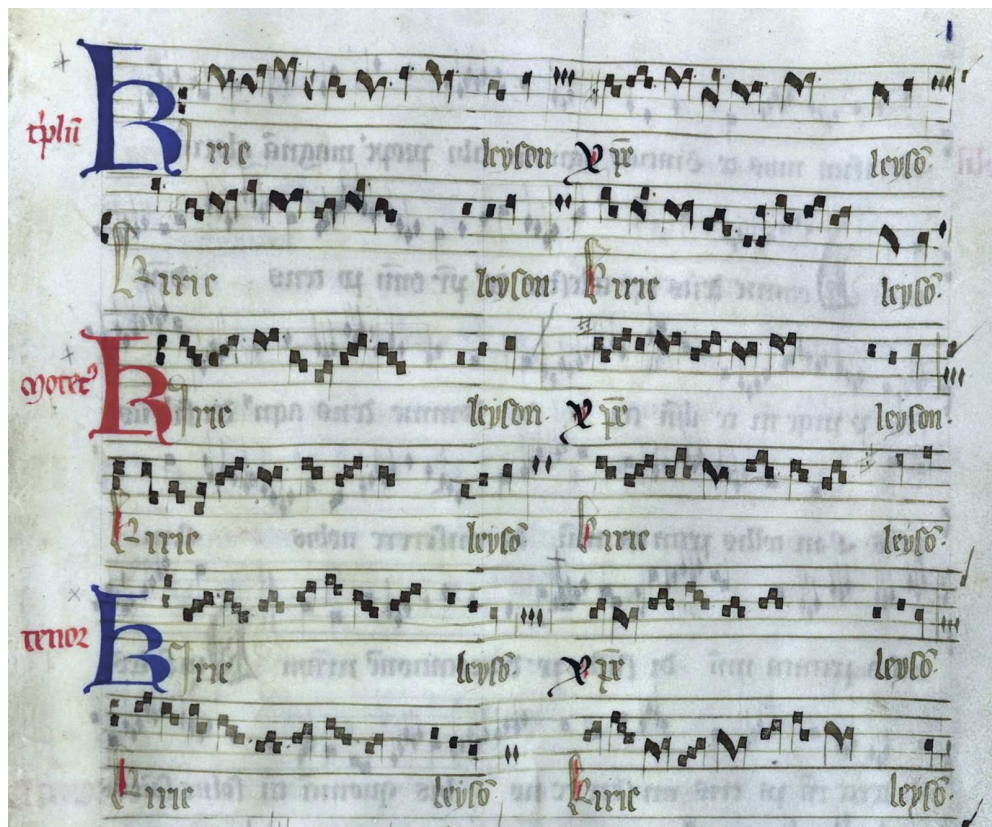 t'plū
Kyrie leyson xp̄e leysō·
Kirie leyson Kirie leysō·
Motet⁹
Kyrie leyson xp̄e leyson·
Kirie leysō Kirie leysō·
tenor
Kyrie leysō· xp̄e leysō·
Kirie leysō Kirie leysō·